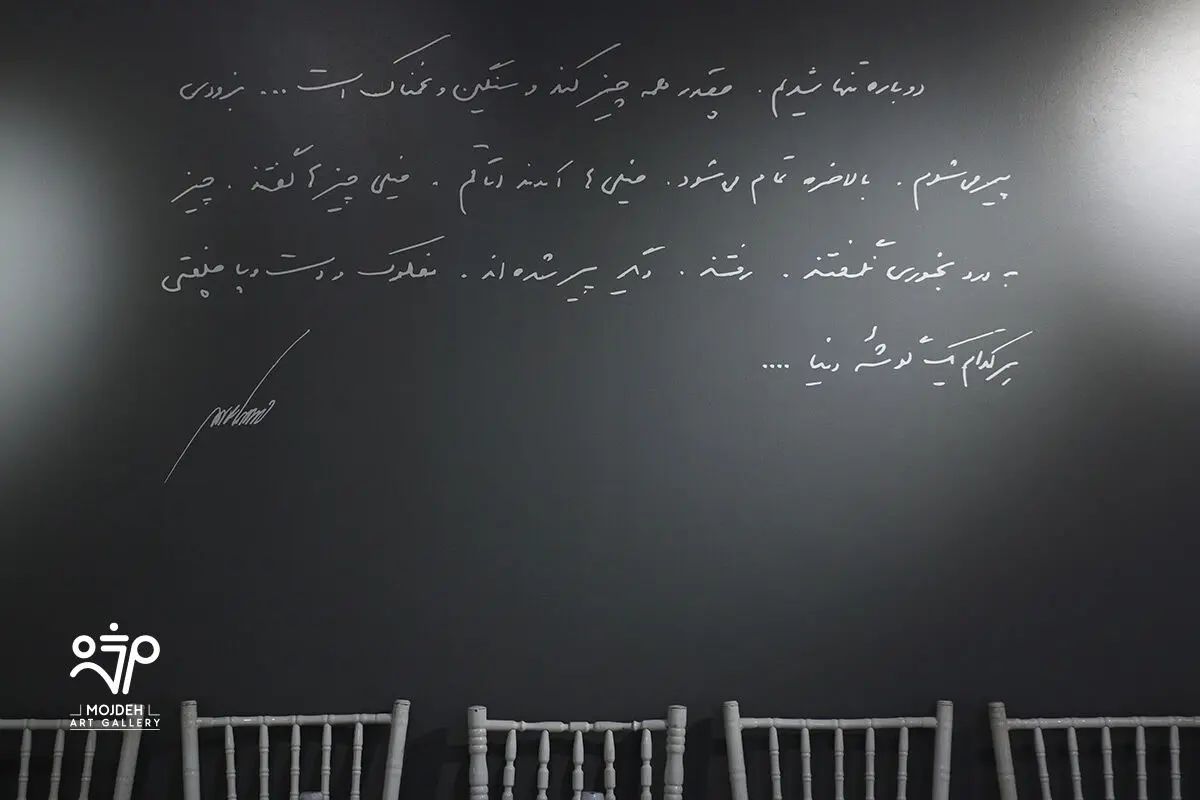 دوباره تنها شدیم. چقدر همه چیز کند و سنگین و غمناک است... بزودی
پیر می‌شوم. بالاخره تمام می‌شود. خیلی‌ها آمدند اتاقم. خیلی چیزها گفتند. چیز
به درد بخوری نگفتند. رفتند. دیگر پیر شده‌اند. مفلوک و دست و پا چلفتی
هر کدام یک گوشهٔ دنیا ....
مژده
MOJDEH
ART GALLERY